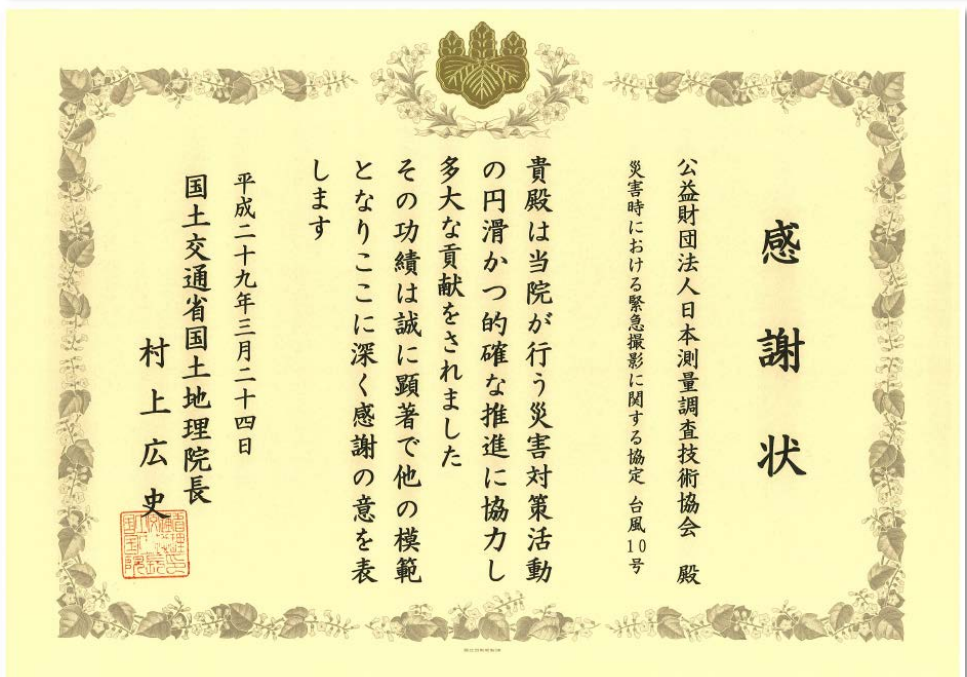 感謝状
公益財団法人日本測量調査技術協会 殿
災害時における緊急撮影に関する協定 台風10号
貴殿は当院が行う災害対策活動
の円滑かつ的確な推進に協力し
多大な貢献をされました
その功績は誠に顕著で他の模範
となりここに深く感謝の意を表
します
平成二十九年三月二十四日
国土交通省国土地理院長
村上広史